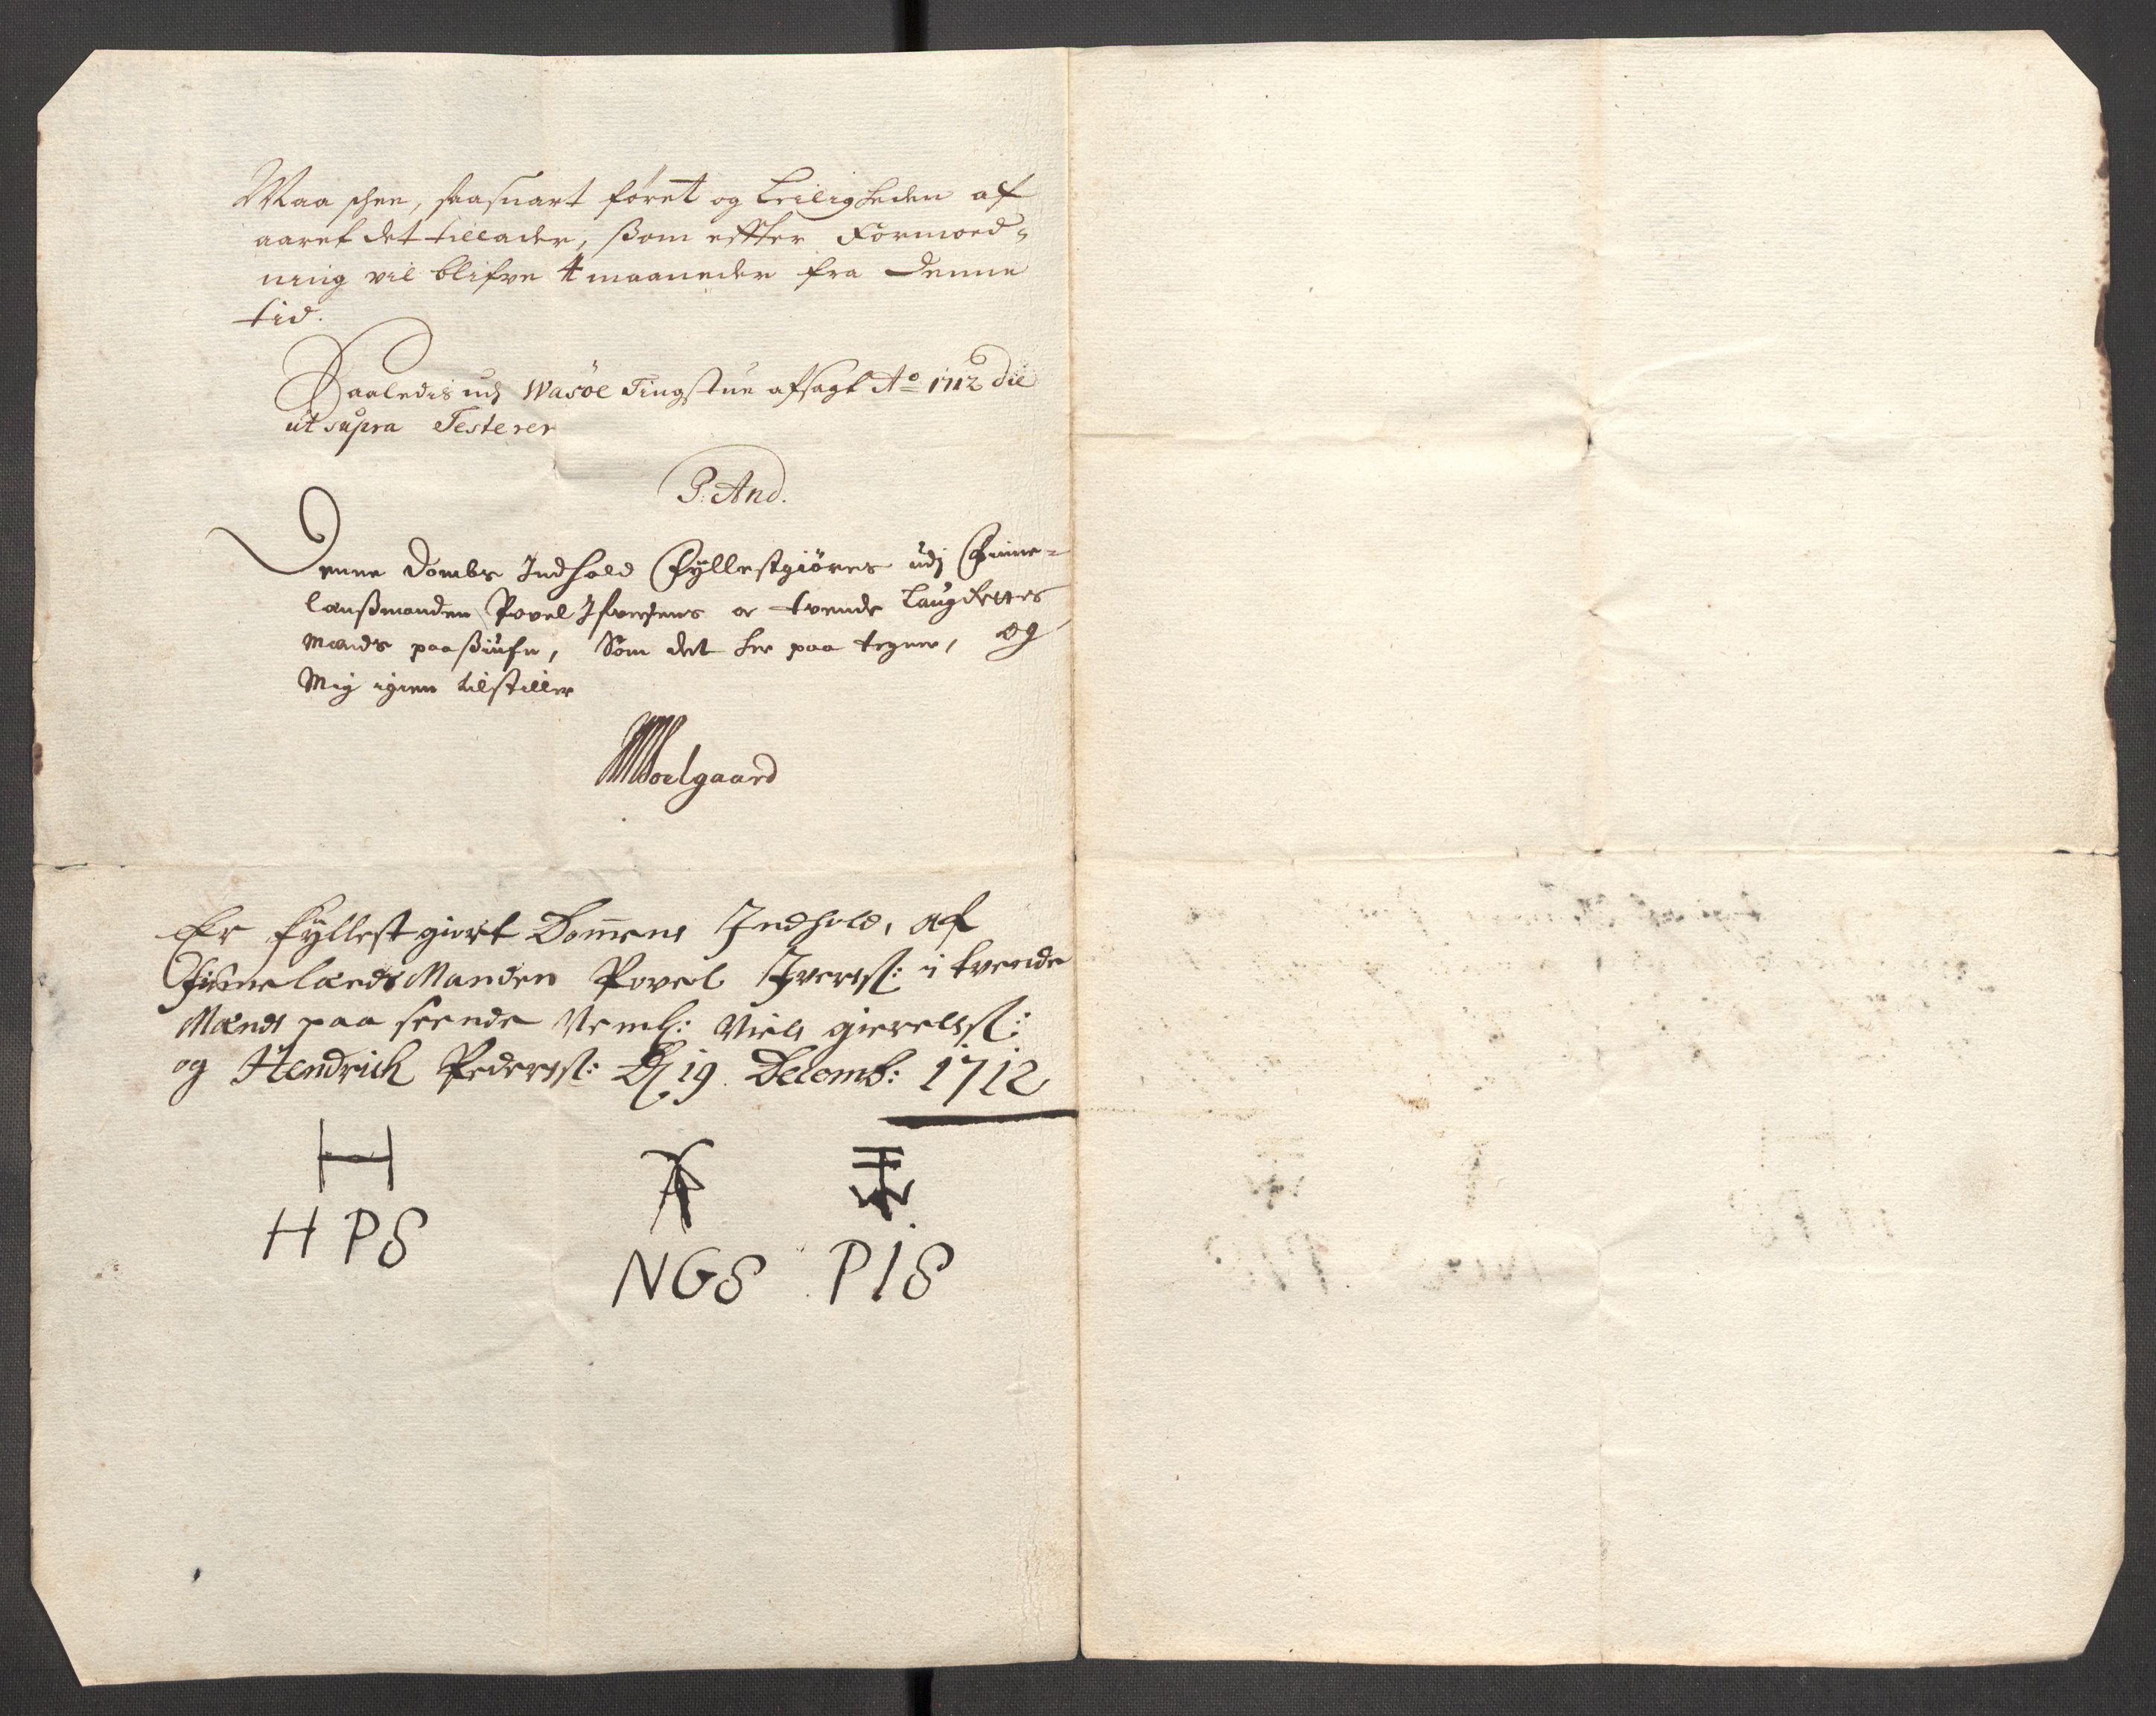 Maa scher, saasnart føret og Leiligheden af
aaret det tillader, ßom effter Formoed-
ning vil blifve 4 maaneder fra denne
tid.
Saaledis udj Wasöe Tingstue afsagt Ao 1712 die
ut supra Testerer
P: And.
Denne Dombs Indhold Fyllestgiöres udj Finne-
lanßmanden Povel Ifversens oc tvende Laugrettes
Mænds paaßiufn, Som det her paa tegner, og
Mig igien tilstiller
Soelgaard
Er fyllest giort Domens Indhold, af
Finnelænds Manden Povel Iverss: i tvende
Mænds paa seende Neml: Niels gierelss:
og Hendrich Pederss: D 19 Decemb: 1712
H P S
N G S P I S